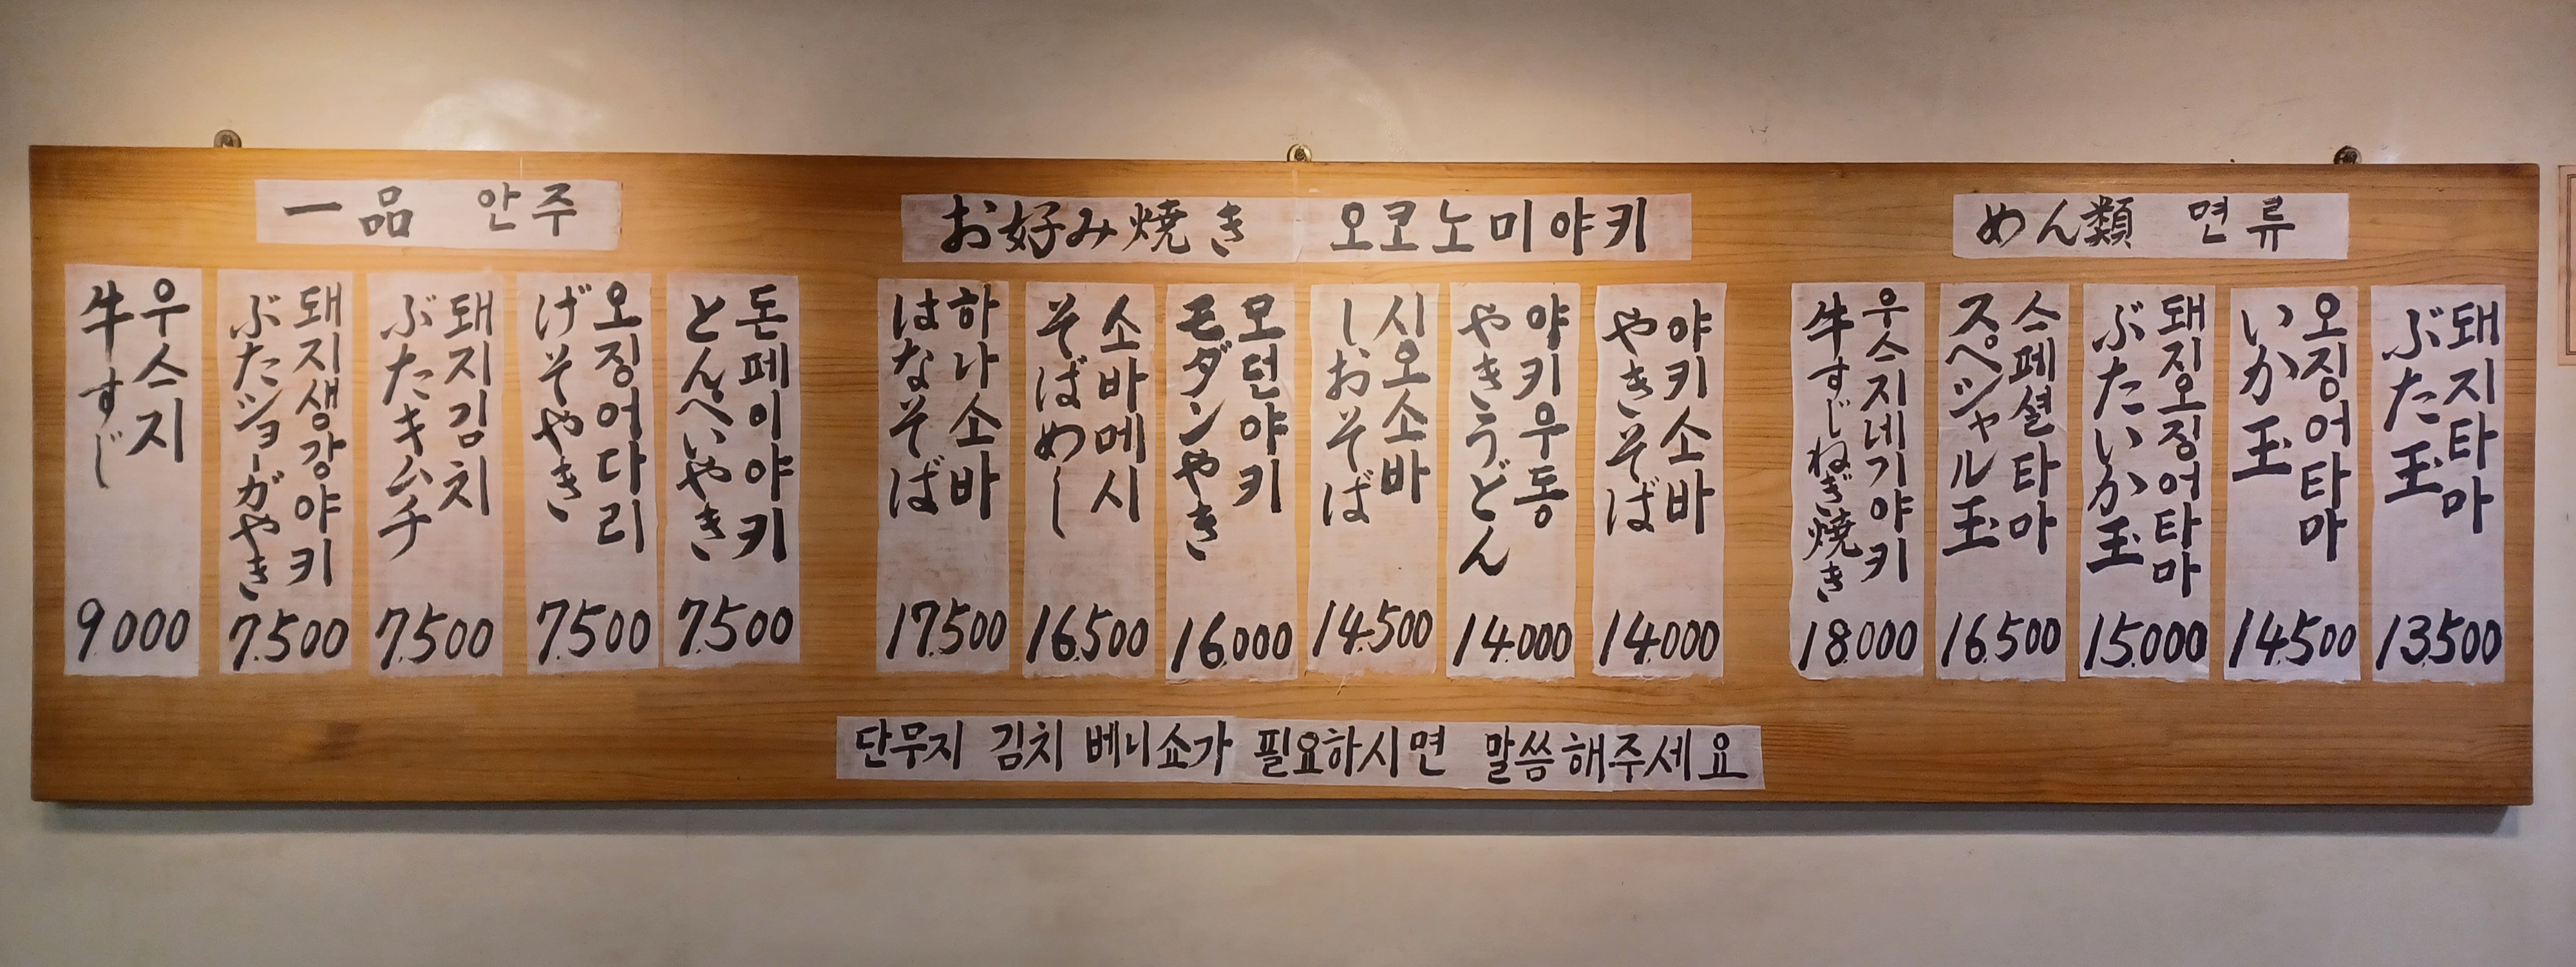 一品 안주
우스지
牛すじ
9.000
돼지생강야키
ぶたショーガやき
7.500
돼지김치
ぶたキムチ
7.500
오징어다리
げそやき
7.500
돈페이야키
とんぺいやき
7.500
お好み焼き 오코노미야키
하나소바
はなそば
17.500
소바메시
そばめし
16.500
모던야키
モダンやき
16.000
시오소바
しおそば
14.500
야키우동
やきうどん
14.000
야키소바
やきそば
14.000
めん類 면류
우스지네기야키
牛すじねぎ焼き
18.000
스페셜타마
スペシャル玉
16.500
돼지오징어타마
ぶたいか玉
15.000
오징어타마
いか玉
14.500
돼지타마
ぶた玉
13.500
단무지 김치 베니쇼가 필요하시면 말씀해주세요